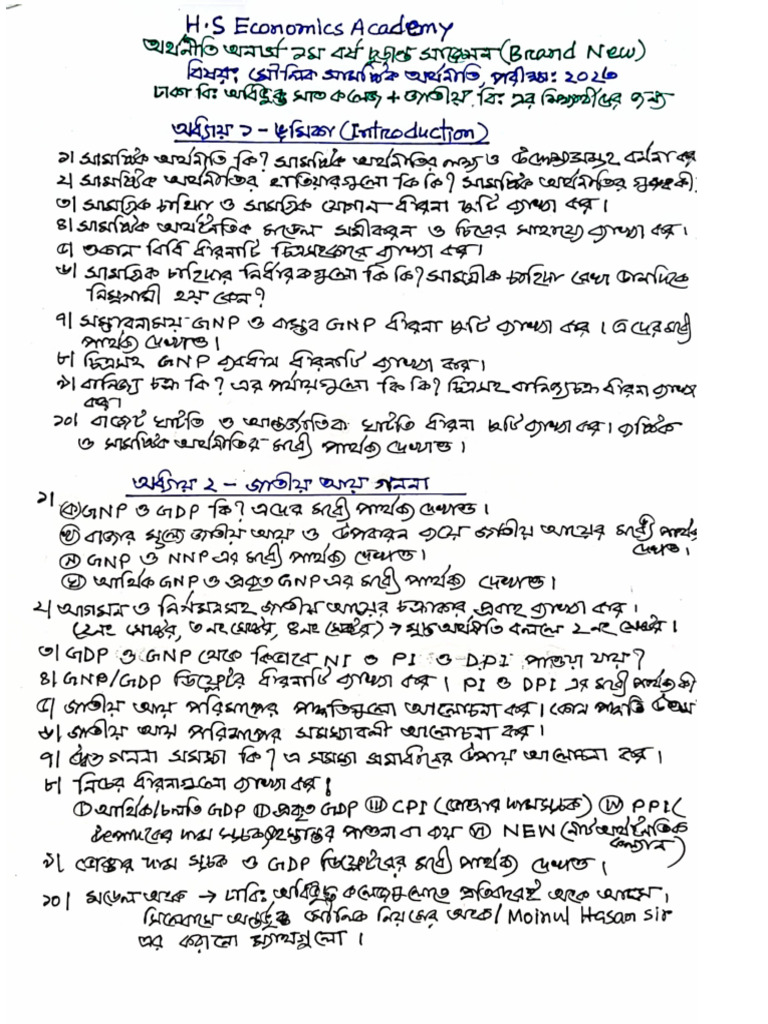 H.S Economics Academy
অর্থনীতি অনার্স ১ম বর্ষ চূড়ান্ত সাজেশন (Brand New)
বিষয়: মৌলিক সামষ্টিক অর্থনীতি, পরীক্ষা: ২০২৩
ঢাকা বি: অধিভুক্ত সাত কলেজ + জাতীয় বি: এর শিক্ষার্থীদের জন্য
অধ্যায় ১ - ভূমিকা (Introduction)
১। সামষ্টিক অর্থনীতি কি? সামষ্টিক অর্থনীতির লক্ষ্য ও উদ্দেশ্যসমূহ বর্ননা কর
২। সামষ্টিক অর্থনীতির হাতিয়ারগুলো কি কি? সামষ্টিক অর্থনীতির গুরুত্ব কী
৩। সামগ্রিক চাহিদা ও সামগ্রিক যোগান ধারনা দুটি ব্যাখ্যা কর।
৪। সামষ্টিক অর্থনৈতিক মডেল সমীকরন ও চিত্রের সাহায্যে ব্যাখ্যা কর।
৫। ওকান বিধি ধারনাটি চিত্রসহকারে ব্যাখ্যা কর।
৬। সামগ্রিক চাহিদার নির্ধারকগুলো কি কি? সামগ্রীক চাহিদা রেখা ডানদিকে
নিম্নগামী হয় কেন?
৭। সম্ভাবনাময় GNP ও বাস্তব GNP ধারনা দুটি ব্যাখ্যা কর। এদের মধ্যে
পার্থক্য দেখাও।
৮। চিত্রসহ GNP ব্যবধান ধারনাটি ব্যাখ্যা কর।
৯। বানিজ্য চক্র কি? এর পর্যায়গুলো কি কি? চিত্রসহ বানিজ্যচক্র ধারনা ব্যাখ্যা
কর।
১০। বাজেট ঘাটতি ও আন্তর্জাতিক ঘাটতি ধারনা দুটি ব্যাখ্যা কর। ব্যষ্টিক
ও সামষ্টিক অর্থনীতির মধ্যে পার্থক্য দেখাও।
অধ্যায় ২ - জাতীয় আয় গননা
১। (ক) GNP ও GDP কি? এদের মধ্যে পার্থক্য দেখাও।
(খ) বাজার মূল্যে জাতীয় আয় ও উপাদান ব্যয়ে জাতীয় আয়ের মধ্যে পার্থক্য
দেখাও।
(গ) GNP ও NNP এর মধ্যে পার্থক্য দেখাও।
(ঘ) আর্থিক GNP ও প্রকৃত GNP এর মধ্যে পার্থক্য দেখাও।
২। আগমন ও নির্গমনসহ জাতীয় আয়ের চক্রাকার প্রবাহ ব্যাখ্যা কর।
(২নং সেক্টর, ৩নং সেক্টর, ৪নং সেক্টর) → মুক্ত অর্থনীতি বললে ২নং সেক্টর।
৩। GDP ও GNP থেকে কিভাবে NI ও PI ও DPI পাওয়া যায়?
৪। GNP/GDP ডিফ্লেটর ধারনাটি ব্যাখ্যা কর। PI ও DPI এর মধ্যে পার্থক্য কী
৫। জাতীয় আয় পরিমাপের পদ্ধতিগুলো আলোচনা কর। কোন পদ্ধতি উত্তম
৬। জাতীয় আয় পরিমাপের সমস্যাবলী আলোচনা কর।
৭। দ্বৈত গননা সমস্যা কি? এ সমস্যা সমাধানের উপায় আলোচনা কর।
৮। নিচের ধারনাগুলো ব্যাখ্যা কর।
(I) আর্থিক/চলতি GDP (II) প্রকৃত GDP (III) CPI (ভোক্তার দাম সূচক) (IV) PPI (
উৎপাদকের দাম সূচক) হস্তান্তর পাওনা বা ব্যয় (VI) NEW (নীট অর্থনৈতিক
কল্যান)
৯। ভোক্তার দাম সূচক ও GDP ডিফ্লেটরের মধ্যে পার্থক্য দেখাও।
১০। মডেল অংক → ঢাবি: অধিভুক্ত কলেজগুলোতে প্রতিবারই অংক আসে।
সিলেবাসে অন্তর্ভুক্ত মৌলিক নিয়মের অংক/ Moinul Hasan sir
এর করানো ম্যাথগুলো।